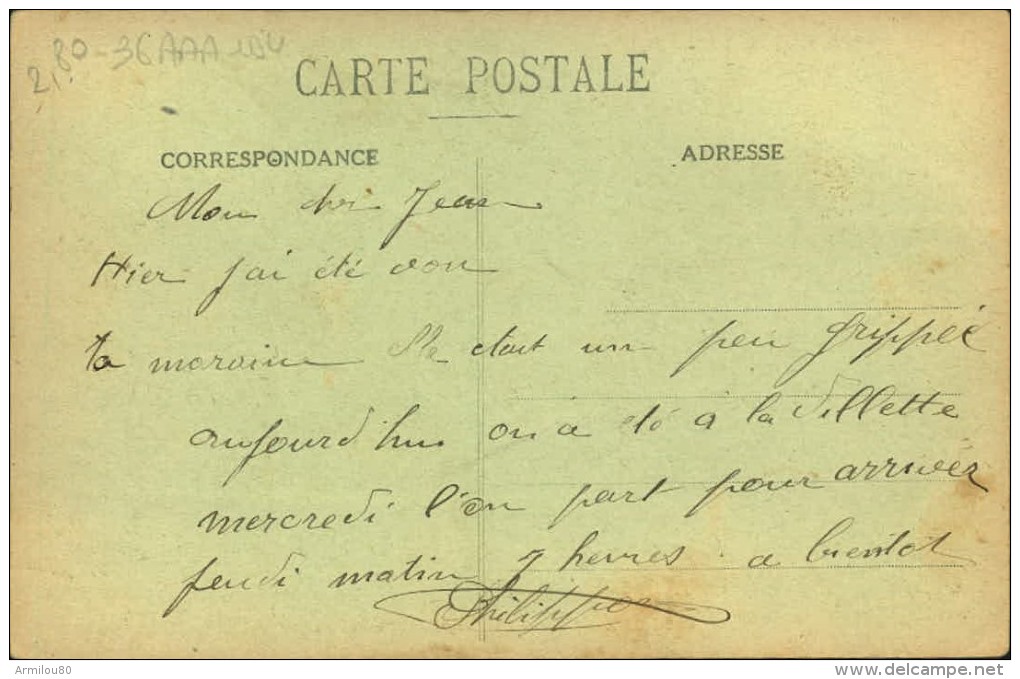 2,80 - 36AAA
CARTE POSTALE
CORRESPONDANCE
ADRESSE
Mon cher Jean
Hier j'ai été voir
ta maraine Elle etait un peu grippée
aujourd'hui on a été à la Villette
mercredi l'on part pour arriver
jeudi matin 7 heures. a bientot
Philippe
Armilou80
www.delcampe.net